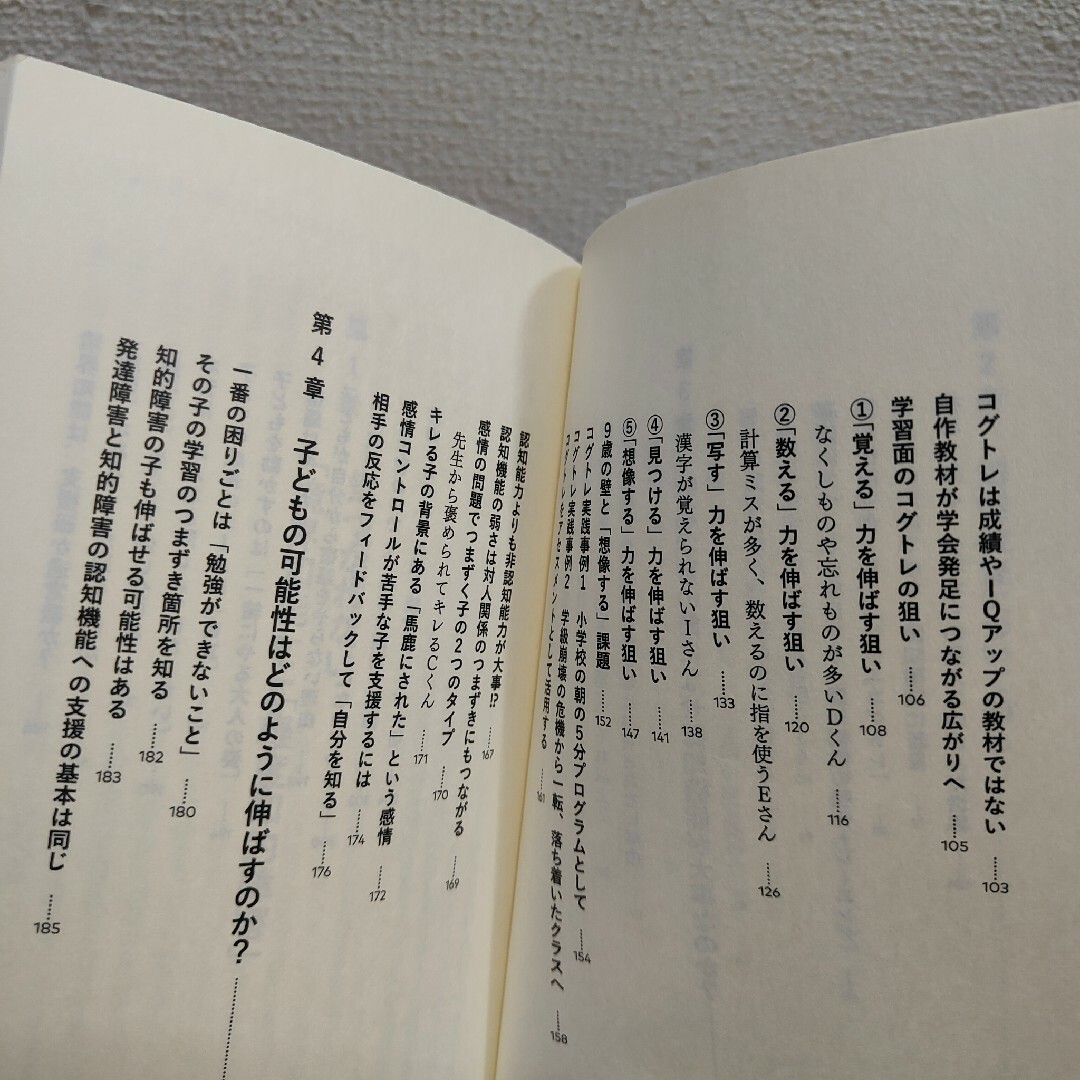 コグトレは成績やIQアップの教材ではない ……103
自作教材が学会発足につながる広がりへ ……105
学習面のコグトレの狙い ……106
①「覚える」力を伸ばす狙い ……108
なくしものや忘れものが多いDくん ……116
②「数える」力を伸ばす狙い ……120
計算ミスが多く、数えるのに指を使うEさん ……126
③「写す」力を伸ばす狙い ……133
漢字が覚えられないIさん ……138
④「見つける」力を伸ばす狙い ……141
⑤「想像する」力を伸ばす狙い ……147
9歳の壁と「想像する」課題 ……152
コグトレ実践事例1 小学校の朝の5分プログラムとして ……154
コグトレ実践事例2 学級崩壊の危機から一転、落ち着いたクラスへ ……158
コグトレをアセスメントとして活用する ……161
認知能力よりも非認知能力が大事!? ……167
認知機能の弱さは対人関係のつまずきにもつながる ……169
感情の問題でつまずく子の2つのタイプ ……170
先生から褒められてキレるCくん ……171
キレる子の背景にある「馬鹿にされた」という感情 ……172
感情コントロールが苦手な子を支援するには ……174
相手の反応をフィードバックして「自分を知る」 ……176
第4章 子どもの可能性はどのように伸ばすのか? ……
一番の困りごとは「勉強ができないこと」 ……180
その子の学習のつまずき箇所を知る ……182
知的障害の子も伸ばせる可能性はある ……183
発達障害と知的障害の認知機能への支援の基本は同じ ……185